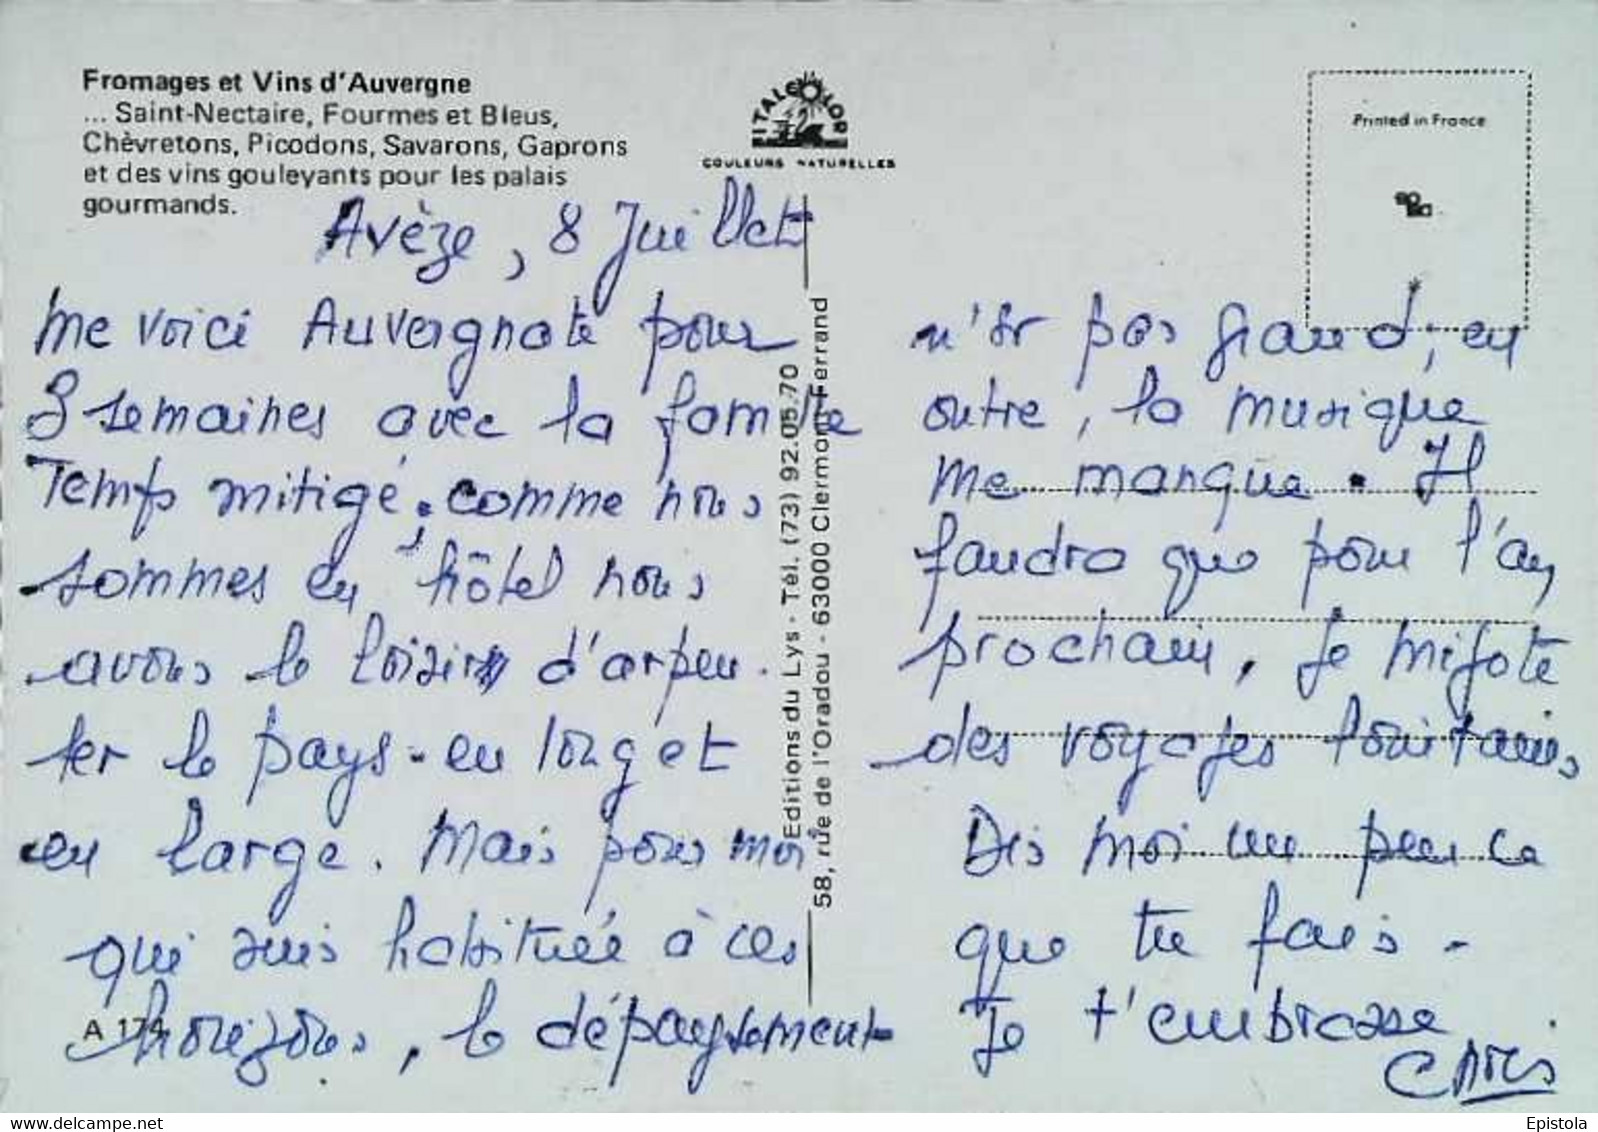 Fromages et Vins d'Auvergne
... Saint-Nectaire, Fourmes et Bleus,
Chèvretons, Picodons, Savarons, Gaprons
et des vins gouleyants pour les palais
gourmands.
ITALCOLOR
COULEURS NATURELLES
Printed in France
Avèze, 8 Juillet
me voici Auvergnate pour
3 semaines avec la famille
Temps mitigé. comme nous
sommes en l'hôtel nous
avons le loisir d'arpen.
ter le pays-en long et
en large. Mais pour moi
qui suis habituée à ces
horizons, le dépaysement
A 174
Editions du Lys - Tél. (73) 92.05.70
58, rue de l'Oradou - 63000 Clermont-Ferrand
n'est pas grand, en
outre, la musique
me manque. Il
faudra que pour l'an
prochain, je mijote
des voyages lointains
Dis moi un peu ce
que tu fais -
Je t'embrasse
Epistola